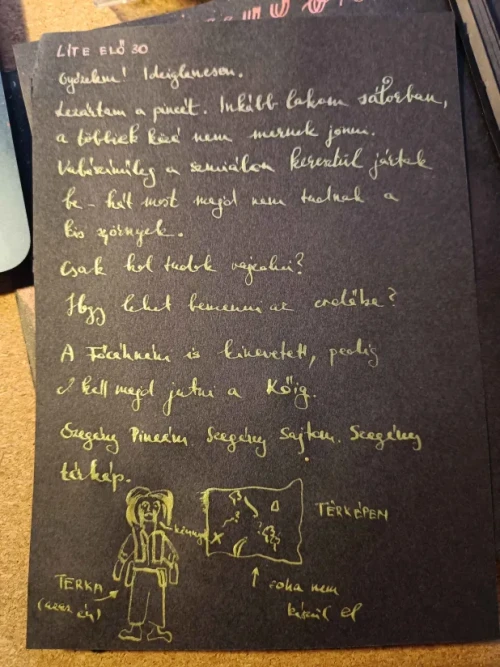 LITE ELŐ 30
Győzelem! Ideiglenesen.
Lezártam a pincét. Inkább lakom sátorban,
a többiek közé nem mernek jönni.
Valószínűleg a szmiálon keresztül jártak
be - hát most majd nem tudnak a
kis szörnyek.
Csak hol tudok vajcolni?
Hogy lehet bemenni az erdőbe?
A Főcéhném is kinevetett, pedig
el kell majd jutni a Kőig.
Szegény Pincém. Szegény Sajtom. Szegény
térkép.
könny
TÉRKÉPEM
TERKA
(azaz
én)
↑ soha nem
készül el